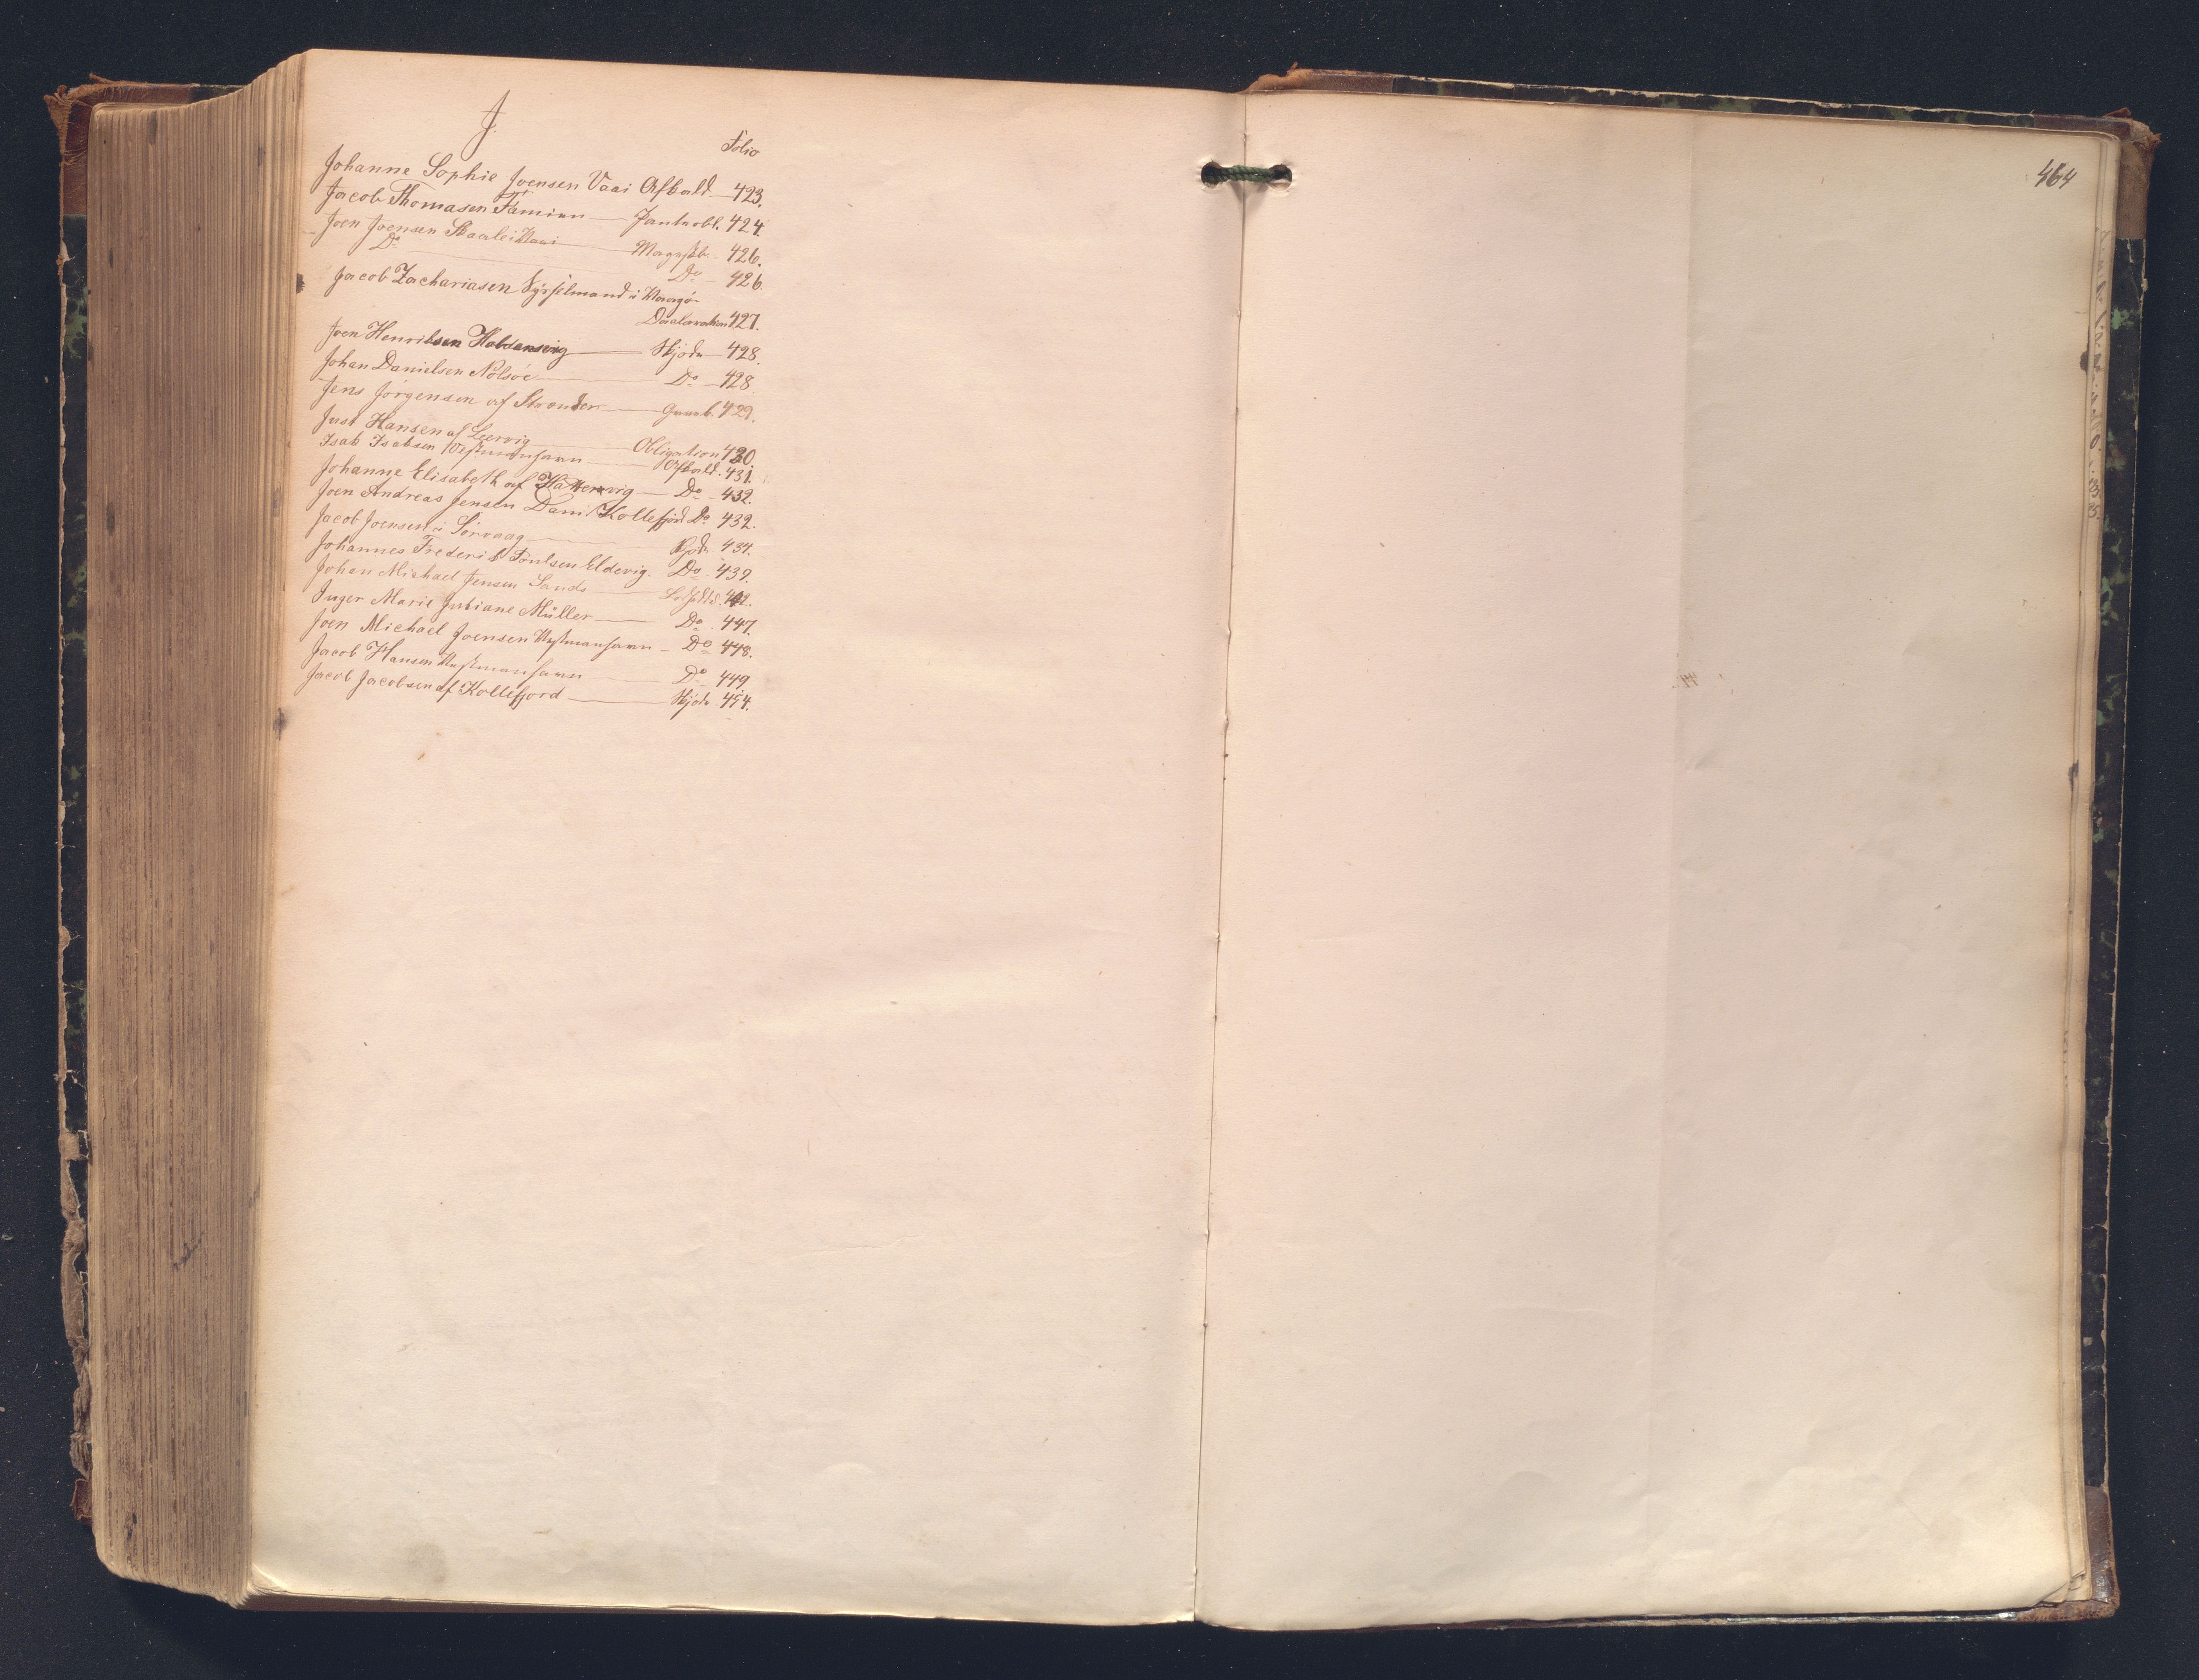 J.
Folio
Johanne Sophie Joensen Vaai Afkald 423.
Jacob Thomasen Famien Panteobl. 424.
Joen Joensen Skaalei Vaai Mageskb. 426.
Do Do 426.
Jacob Zachariasen Sysselmand i Vaagø
Declaration 427.
Joen Henriksen Haldansvig Skjøde 428.
Johan Danielsen Nolsøe Do 428
Jens Jørgensen af Strænder 429.
Just Hansen af Leervig Obligation 430
Isak Isaksen Vestmanhavn Afkald. 431.
Johanne Elisabeth af Hattervig Do 432.
Joen Andreas Jensen Dam i Kollefjord Do 432.
Jacob Joensen i Sørvaag Skjøde 434.
Johannes Frederik Poulsen Eldevig. Do. 439.
Johan Michael Jensen Sands 442.
Inger Marie Jubiane Müller Do 447.
Joen Michael Joensen Vestmanhavn Do 448.
Jacob Hansen Vestmanhavn Do 449
Jacob Jacobsen af Kollefjord Skjøde 454.
464